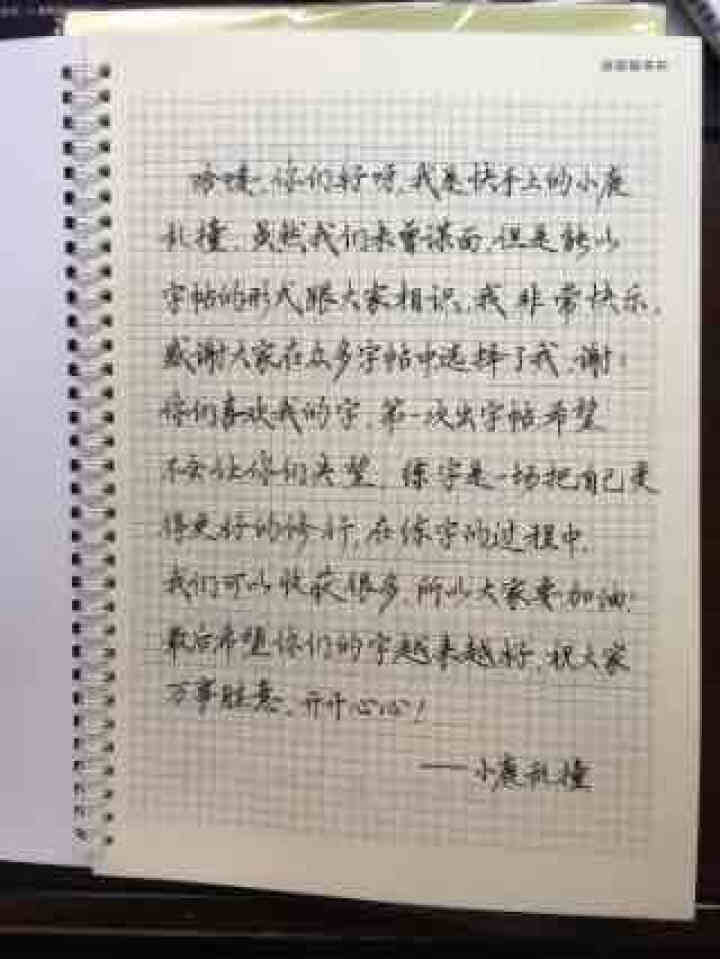 哈喽,你们好呀,我是快手上的小鹿
乱撞,虽然我们未曾谋面,但是能以
字帖的形式跟大家相识,我非常快乐,
感谢大家在众多字帖中选择了我,谢谢
你们喜欢我的字,第一次出字帖,希望
不会让你们失望,练字是一场把自己变
得更好的修行,在练字的过程中,
我们可以收获很多,所以大家要加油!
最后希望你们的字越来越好,祝大家
万事胜意、开开心心!
——小鹿乱撞